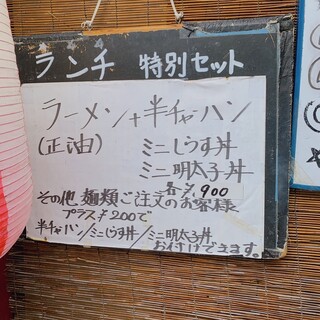 ランチ 特別セット
ラーメン+半チャーハン
(正油) ミニしらす丼
ミニ明太子丼
各¥,900
その他、麺類ご注文のお客様
プラス¥200で
半チャーハン/ミニしらす丼/ミニ明太子丼
お付けできます。